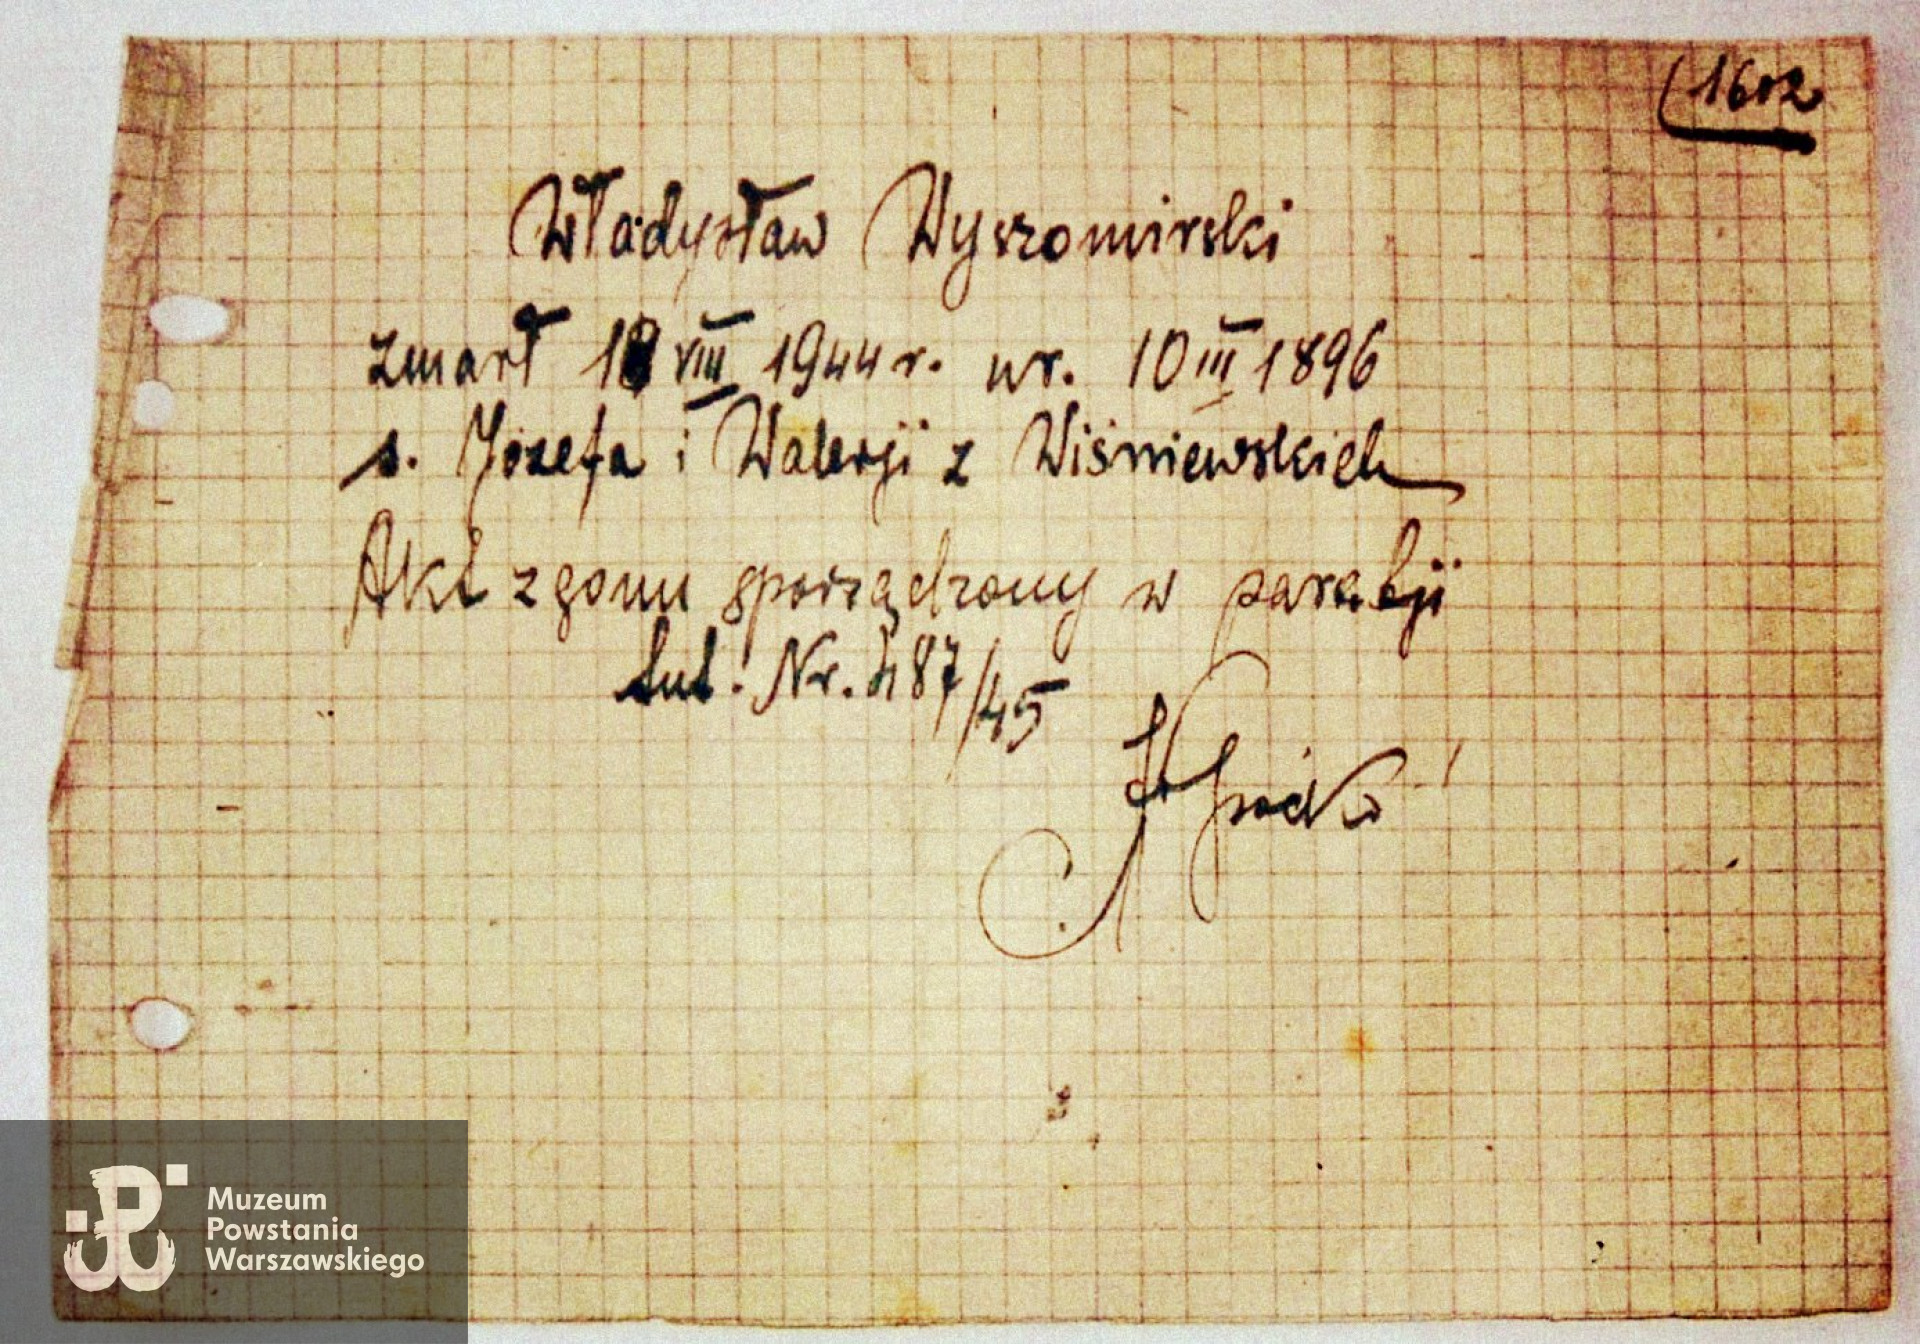 1602
Władysław Wyszomirski
zmarł 18 VIII 1944 r. ur. 10 III 1896
s. Józefa i Walerji z Wiśniewskich
Akt zgonu sporządzony w parafji
tut. Nr. 487/45
Muzeum
Powstania
Warszawskiego